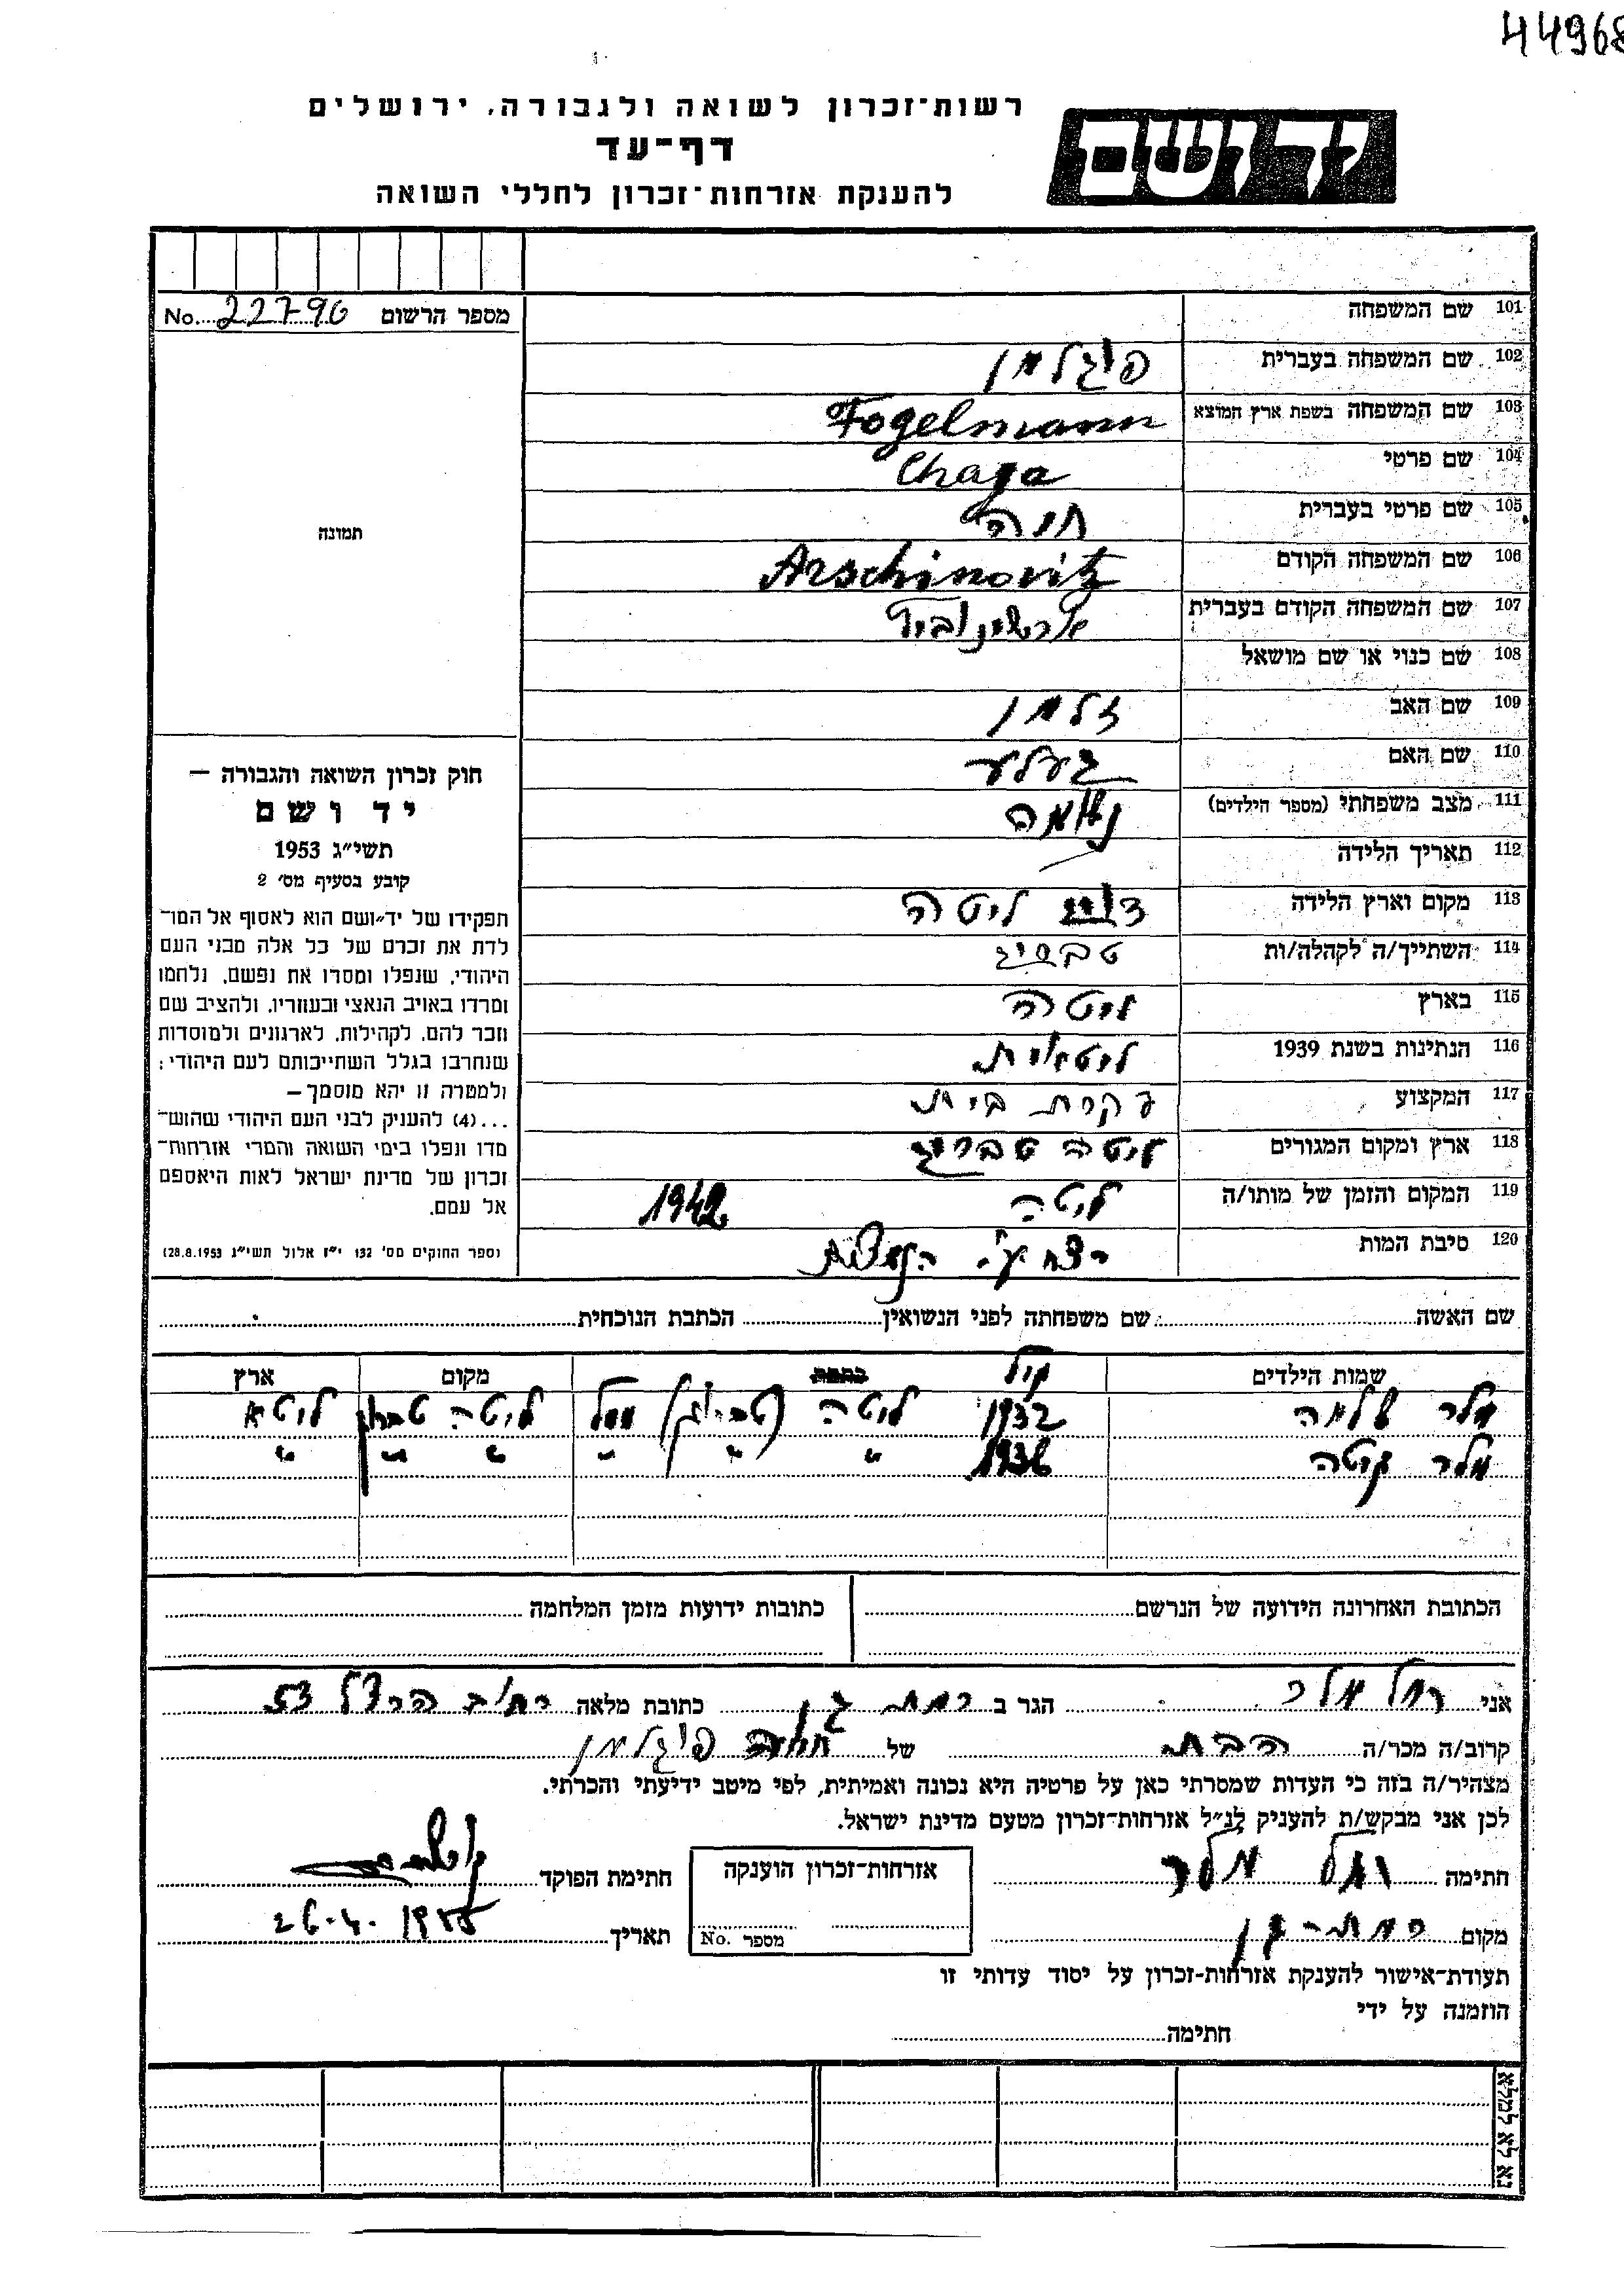 44968
רשות־זכרון לשואה ולגבורה, ירושלים
יד ושם
דף־עד
להענקת אזרחות־זכרון לחללי השואה
מספר הרשום No. 22796
תמונה
101 שם המשפחה
102 שם המשפחה בעברית פוגלמן
103 שם המשפחה בשפת ארץ המוצא Fogelmann
104 שם פרטי Chaja
105 שם פרטי בעברית
106 שם המשפחה הקודם Arschinovitz
107 שם המשפחה הקודם בעברית ארשינוביץ
108 שם כנוי או שם מושאל
109 שם האב זלמן
110 שם האם
111 מצב משפחתי (מספר הילדים) נשואה
112 תאריך הלידה
113 מקום וארץ הלידה ליטה
114 השתייך/ה לקהלה/ות טבריג
115 בארץ ליטה
116 הנתינות בשנת 1939 ליטאית
117 המקצוע עקרת בית
118 ארץ ומקום המגורים ליטה טבריג
119 המקום והזמן של מותו/ה ליטה 1942
120 סיבת המות
חוק זכרון השואה והגבורה —
יד ושם
תשי״ג 1953
קובע בסעיף מס׳ 2
תפקידו של יד־ושם הוא לאסוף אל המו־
לדת את זכרם של כל אלה מבני העם
היהודי, שנפלו ומסרו את נפשם, נלחמו
ומרדו באויב הנאצי ובעוזריו, ולהציב שם
וזכר להם, לקהילות, לארגונים ולמוסדות
שנחרבו בגלל השתייכותם לעם היהודי;
ולמטרה זו יהא מוסמך—
...(4) להעניק לבני העם היהודי שהוש־
מדו ונפלו בימי השואה והמרי אזרחות־
זכרון של מדינת ישראל לאות היאספם
אל עמם.
(ספר החוקים מס׳ 132 י״ז אלול תשי״ג 28.8.1953)
שם האשה שם משפחתה לפני הנשואין הכתבת הנוכחית
שמות הילדים מקום ארץ
מלר שלמה 1932 ליטה ממל ליטה ליטא
מלר 1936 " " " " " "
הכתובת האחרונה הידועה של הנרשם כתובות ידועות מזמן המלחמה
אני רחל מלר הגר ב רמת גן כתובת מלאה רחוב הרצל 53
קרוב/ה מכר/ה הבת של פוגלמן
מצהיר/ה בזה כי העדות שמסרתי כאן על פרטיה היא נכונה ואמיתית, לפי מיטב ידיעתי והכרתי.
לכן אני מבקש/ת להעניק לנ״ל אזרחות־זכרון מטעם מדינת ישראל.
חתימה רחל מלר אזרחות־זכרון הוענקה חתימת הפוקד
מקום רמת-גן מספר No. תאריך 26.4.1955
תעודת־אישור להענקת אזרחות־זכרון על יסוד עדותי זו
הוזמנה על ידי
חתימה
נא לא למלא